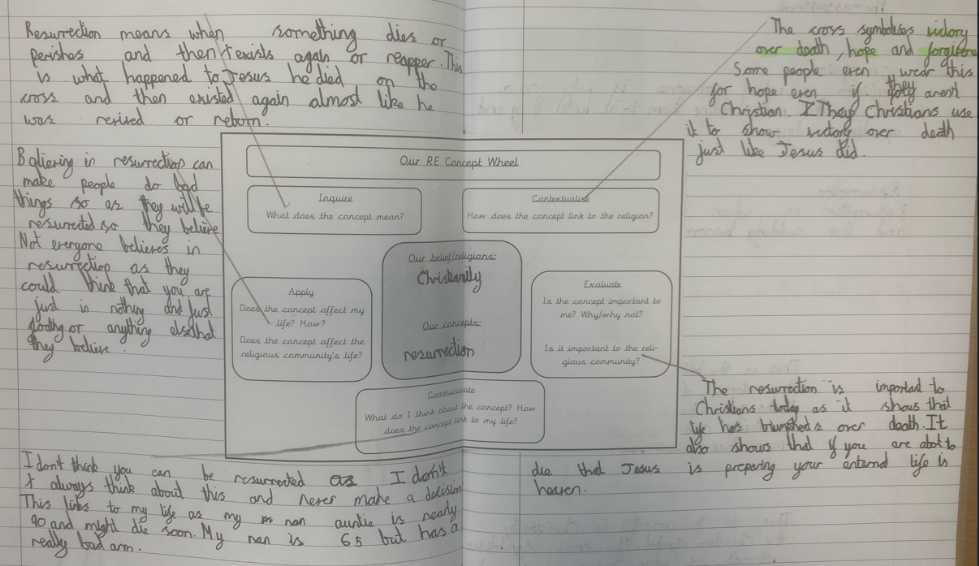 Resurrection means when something dies or
perishes and then exists again or reapper. This
is what happened to Jesus he died on the
cross and then existed again almost like he
was revived or reborn.
The cross symbolises victory
over death, hope and forgivene
Some people even wear this
for hope even if they arent
Christian. Christians use
it to show victory over death
just like Jesus did.
Believing in resurrection can
make people do bad
things so as they will be
resurrected so they believe
Not everyone believes in
resurrection as they
could think that you are
just in nothing and just
or anything
they believe.
Our RE Concept Wheel
Inquire
What does the concept mean?
Contextualise
How does the concept link to the religion?
Our belief/religions:
Christianity
Our concepts:
resurrection
Apply
Does the concept affect my
life? How?
Does the concept affect the
religious community's life?
Evaluate
Is the concept important to
me? Why/why not?
Is it important to the reli-
gious community?
Communicate
What do I think about the concept? How
does the concept link to my life?
The resurrection is important to
Christians today as it shows that
life has triumphed over death. It
also shows that if you are abot to
die that Jesus is preparing your enternal life in
heaven.
I dont think you can be resurrected as I don't
always think about this and never make a decision
This links to my life as my nan auntie is nearly
90 and might die soon. My nan is 65 but has a
really bad arm.